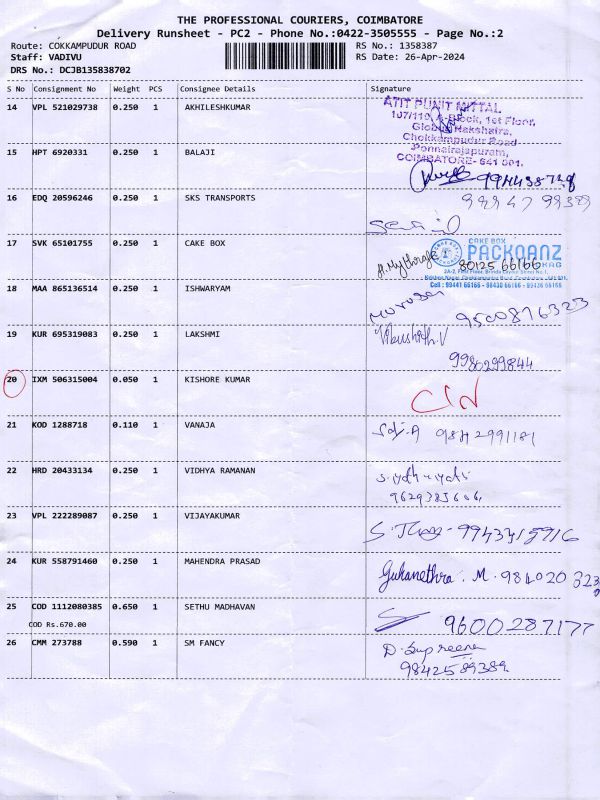 THE PROFESSIONAL COURIERS, COIMBATORE
Delivery Runsheet - PC2 - Phone No.:0422-3505555 - Page No.:2
Route: COKKAMPUDUR ROAD
RS No.: 1358387
Staff: VADIVU
RS Date: 26-Apr-2024
DRS No.: DCJB135838702
S No Consignment No Weight PCS Consignee Details Signature
14 VPL 521029738 0.250 1 AKHILESHKUMAR
ATIT PUNIT MITTAL
107/110, A-Block, 1st Floor,
Global Rakshaira,
Chokkampudur Road
Ponnairajapuram,
COIMBATORE- 641 001.
15 HPT 6920331 0.250 1 BALAJI
16 EDQ 20596246 0.250 1 SKS TRANSPORTS
17 SVK 65101755 0.250 1 CAKE BOX
CAKE BOX
PACKOANZ
80125 66166
Cell : 99441 66166 - 98430 66166 - 99436 66166
18 MAA 865136514 0.250 1 ISHWARYAM
9500876323
19 KUR 695319083 0.250 1 LAKSHMI
9980299844
20 IXM 506315004 0.050 1 KISHORE KUMAR
21 KOD 1288718 0.110 1 VANAJA
22 HRD 20433134 0.250 1 VIDHYA RAMANAN
23 VPL 222289087 0.250 1 VIJAYAKUMAR
9943415916
24 KUR 558791460 0.250 1 MAHENDRA PRASAD
Gukanethra. M.
25 COD 1112080385 0.650 1 SETHU MADHAVAN
9600287177
COD Rs.670.00
26 CMM 273788 0.590 1 SM FANCY
9842589389